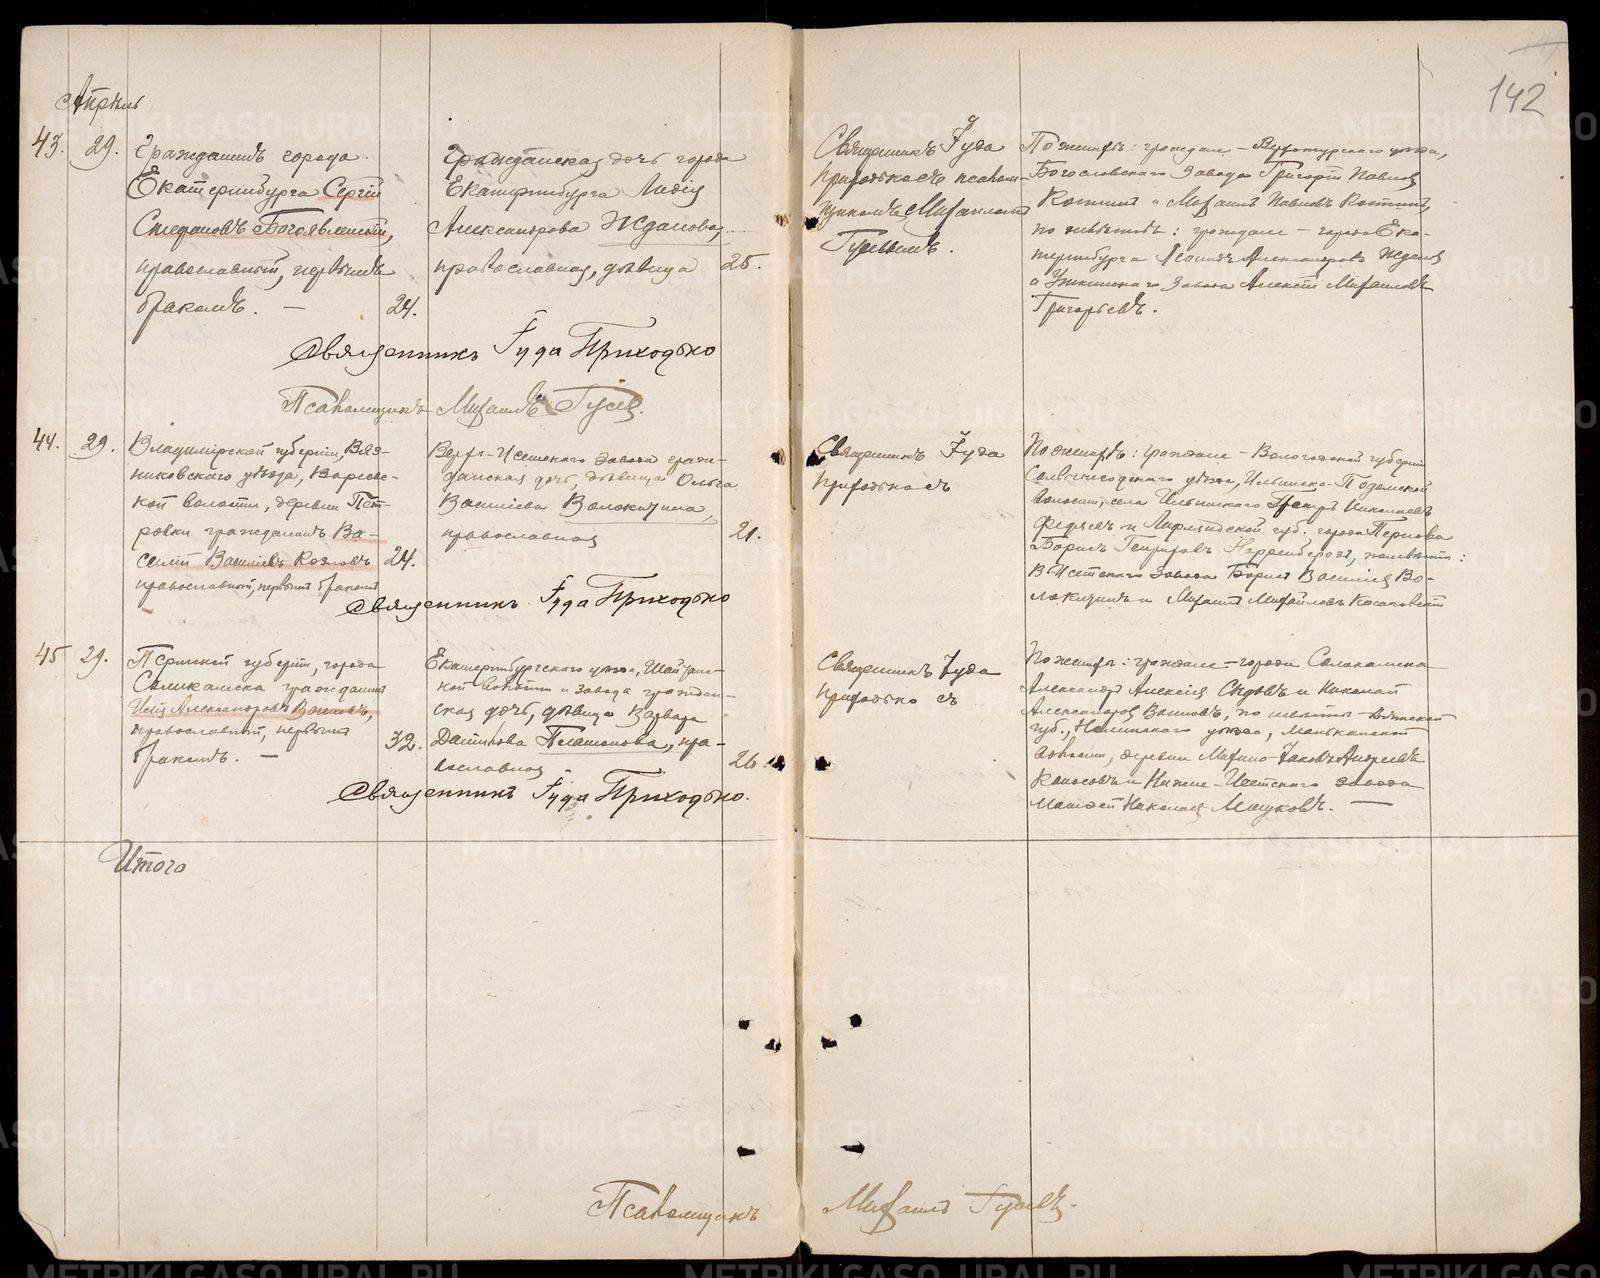 142
Апрѣль
43. 29. Гражданинъ города
Екатеринбурга Сергій
Стефановъ Богоявленскій,
православный, первымъ
бракомъ. — 24.
Гражданская дочь города
Екатеринбурга Лидія
Александрова Жданова,
православная, дѣвица 25.
Священникъ Іуда
Приходько съ псалом-
щикомъ Михаиломъ
Гусевымъ.
По женихѣ: граждане – Верхотурскаго уѣзда,
Богословскаго завода Григорій Павловъ
Костинъ и Михаилъ Павловъ Костинъ,
по невѣстѣ: граждане – города Ека-
теринбурга Леонидъ Александровъ Ждановъ
и Уткинскаго завода Алексѣй Михаиловъ
Григорьевъ.
Священникъ Іуда Приходько
Псаломщикъ Михаилъ Гусевъ.
44. 29. Владимірской губерніи, Вяз-
никовскаго уѣзда,
кой волости, деревни Пет-
ровки гражданинъ Ва-
силій Васильевъ Козловъ 24.
православный, первымъ бракомъ
Верхъ-Исетскаго завода граж-
данская дочь, дѣвица Ольга
Василіева Волокитина,
православная 21.
Священникъ Іуда
Приходько съ
По женихѣ: граждане – Вологодской губерніи
Сольвычегодскаго уѣзда, Ильинско-Подомской
волости, села Ильинскаго Николаевъ
и Лифляндской губ. города Пернова
Борисъ по невѣстѣ:
В-Исетскаго завода Борисъ Василіевъ Во-
локитинъ и Михаилъ Михайловъ
Священникъ Іуда Приходько
45 29. Пермской губерніи, города
Соликамска гражданинъ
Александровъ Воиновъ,
православный, первымъ
бракомъ. — 32.
Екатеринбургскаго уѣзда, Шайтан-
кой волости и завода граждан-
ская дочь, дѣвица Варвара
Данилова Платонова, пра-
вославная 26.
Священникъ Іуда
Приходько съ
По женихѣ: граждане – города Соликамска
Александръ Алексѣевъ Сѣдовъ и Николай
Александровъ Воиновъ, по невѣстѣ – Вятской
губ., Нолинскаго уѣзда,
волости, деревни Яковъ Андреевъ
и Нижне-Исетскаго завода
Матвѣй Николаевъ —
Священникъ Іуда Приходько.
Итого
Псаломщикъ Михаилъ Гусевъ.
METRIKI.GASO-URAL.RU